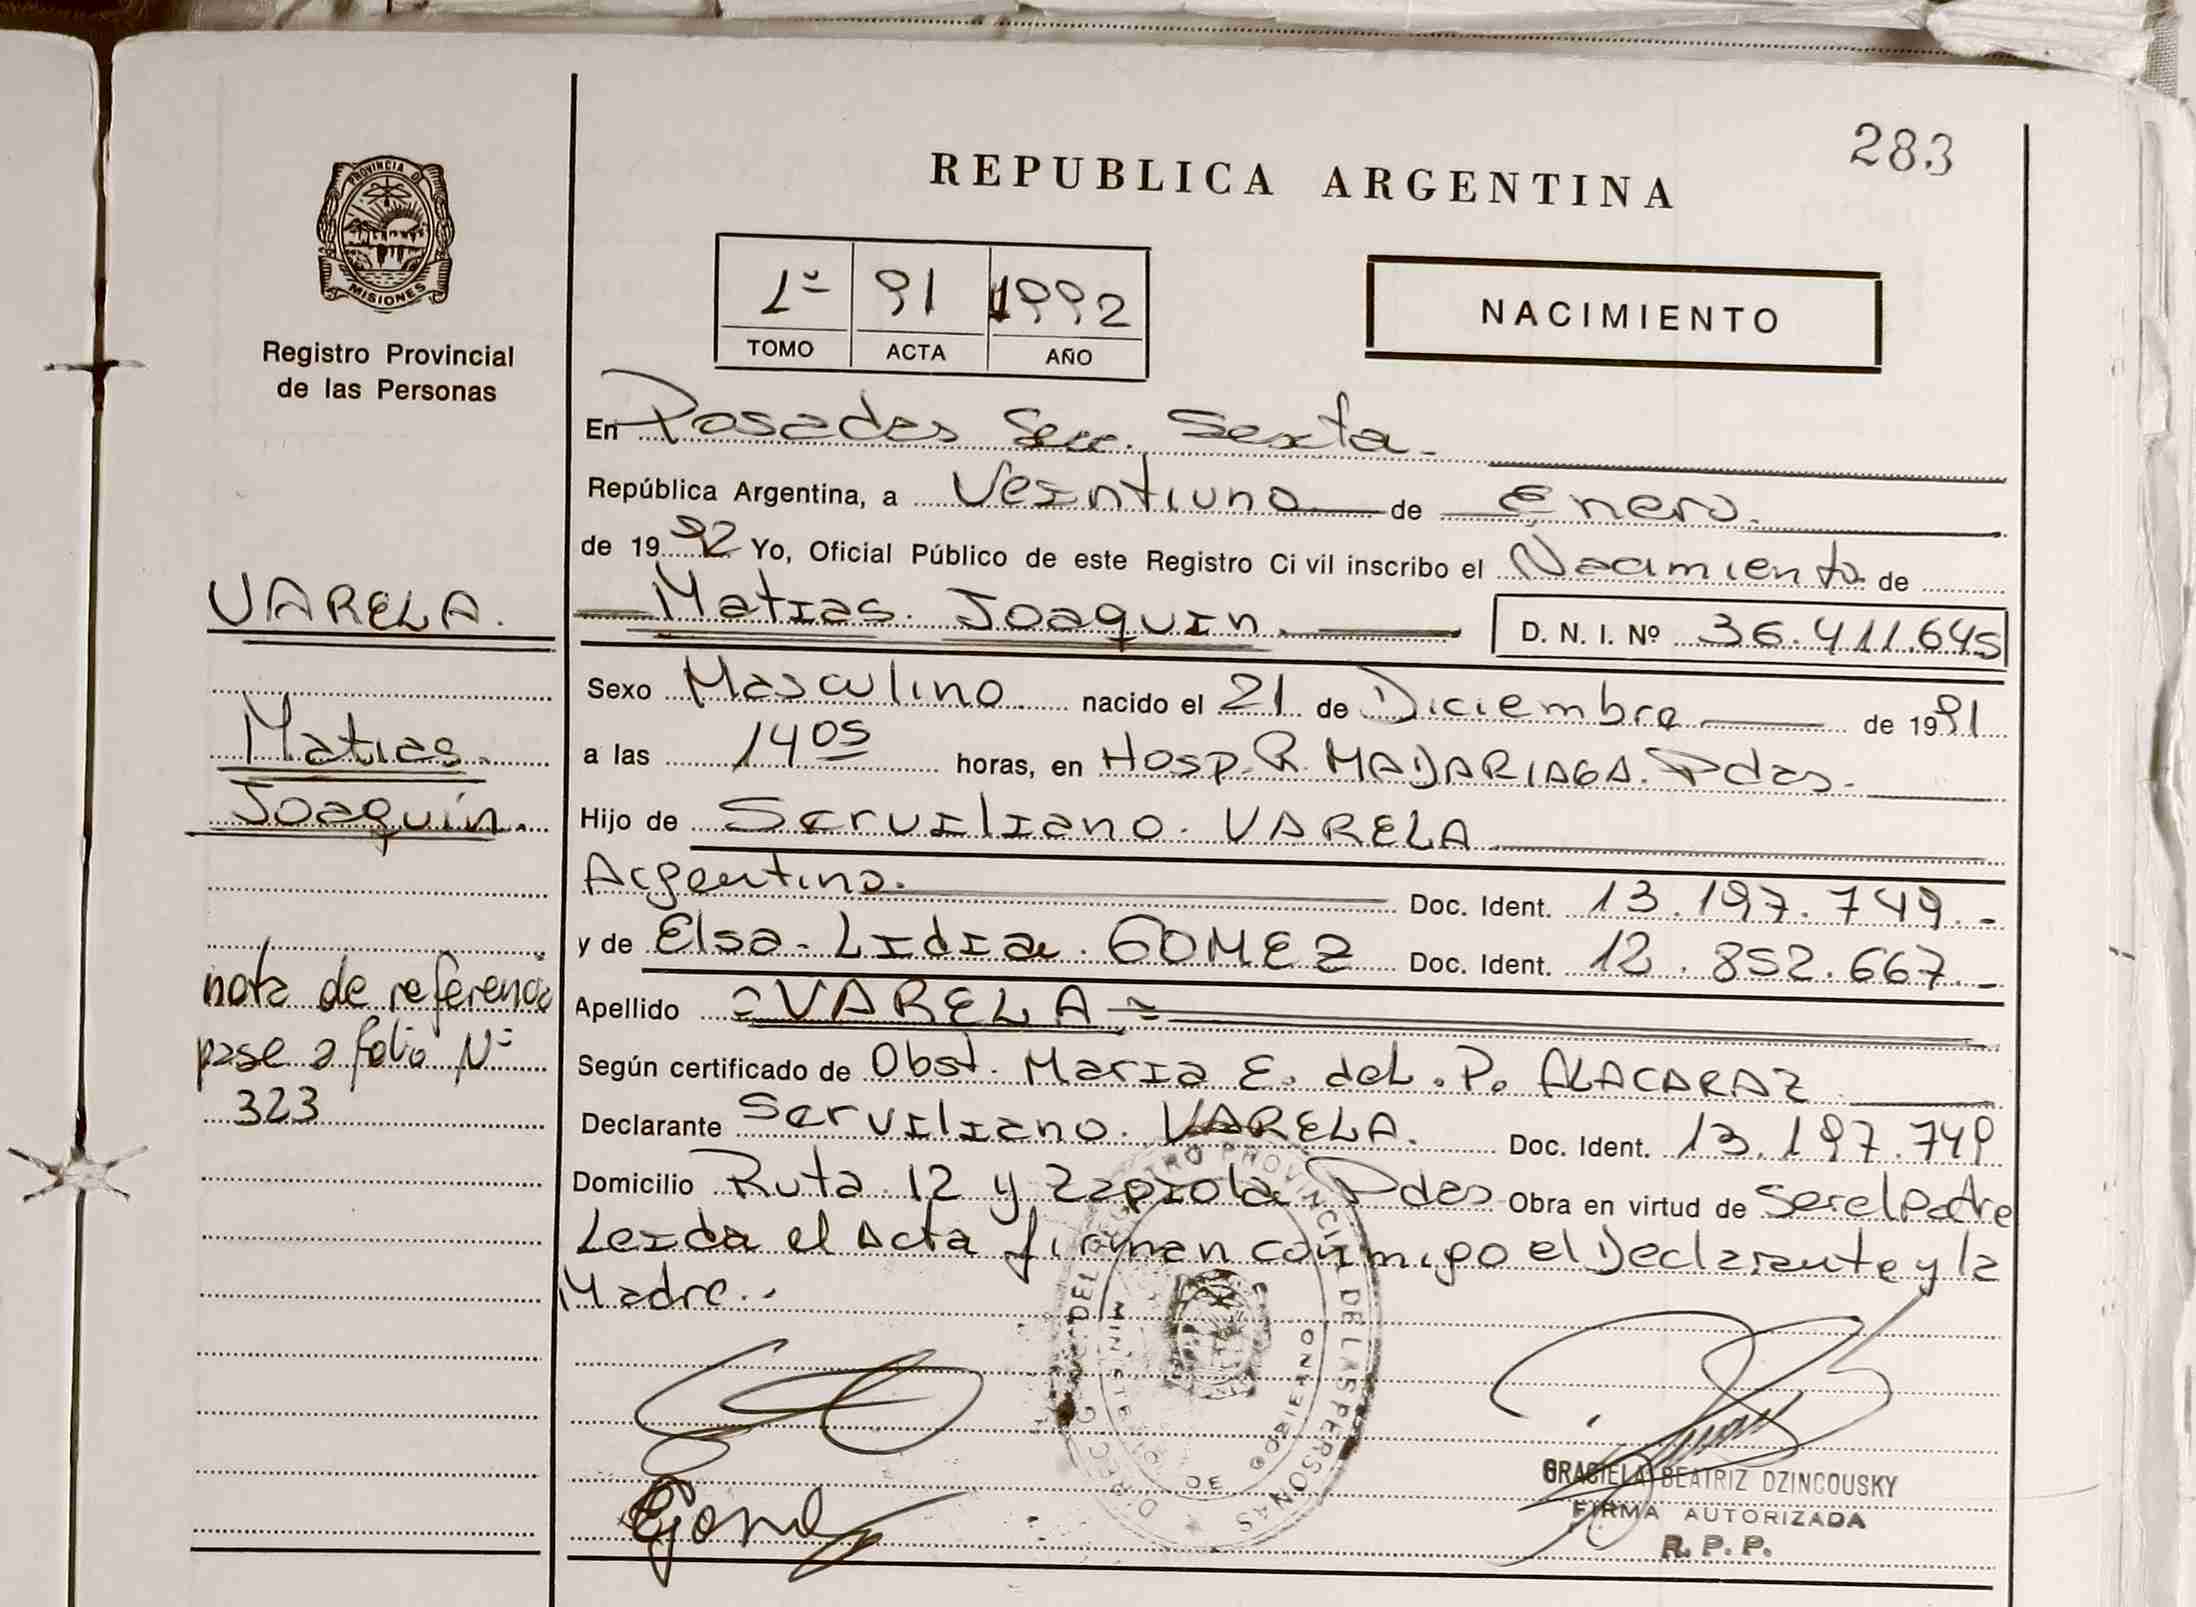 283
REPUBLICA ARGENTINA
PROVINCIA DE
MISIONES
Registro Provincial
de las Personas
1º 91 1992
TOMO ACTA AÑO
NACIMIENTO
En Posadas Secc. Sexta.
República Argentina, a Veintiuno de Enero.
de 1992 Yo, Oficial Público de este Registro Ci vil inscribo el Nacimiento de
Matias. Joaquin. D. N. I. Nº 36.411.645
VARELA.
Matias.
Joaquín.
Sexo Masculino nacido el 21 de Diciembre de 1991
a las 14 05 horas, en Hosp. R. MADARIAGA. Pdas.
Hijo de Serviliano. VARELA
Argentino. Doc. Ident. 13.197.749.-
y de Elsa. Lidia. GOMEZ Doc. Ident. 12.852.667.-
Apellido =VARELA=
nota de referencia
pase a folio Nº
323
Según certificado de Obst. Maria E. del. P. ALACARAZ
Declarante Serviliano. VARELA. Doc. Ident. 13.197.749
Domicilio Ruta 12 y Zapiola Pdas Obra en virtud de Ser el Padre
Leida el Acta firman conmigo el Declarante y la
Madre..
DEL REGISTRO PROVINCIAL DE LAS PERSONAS
MINISTERIO DE GOBIERNO
GRACIELA BEATRIZ DZINCOUSKY
FIRMA AUTORIZADA
R. P. P.